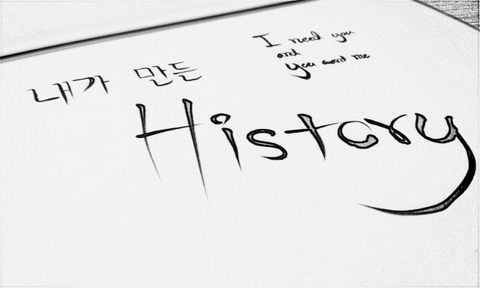 내가 만든
I need you
and
you want me
History